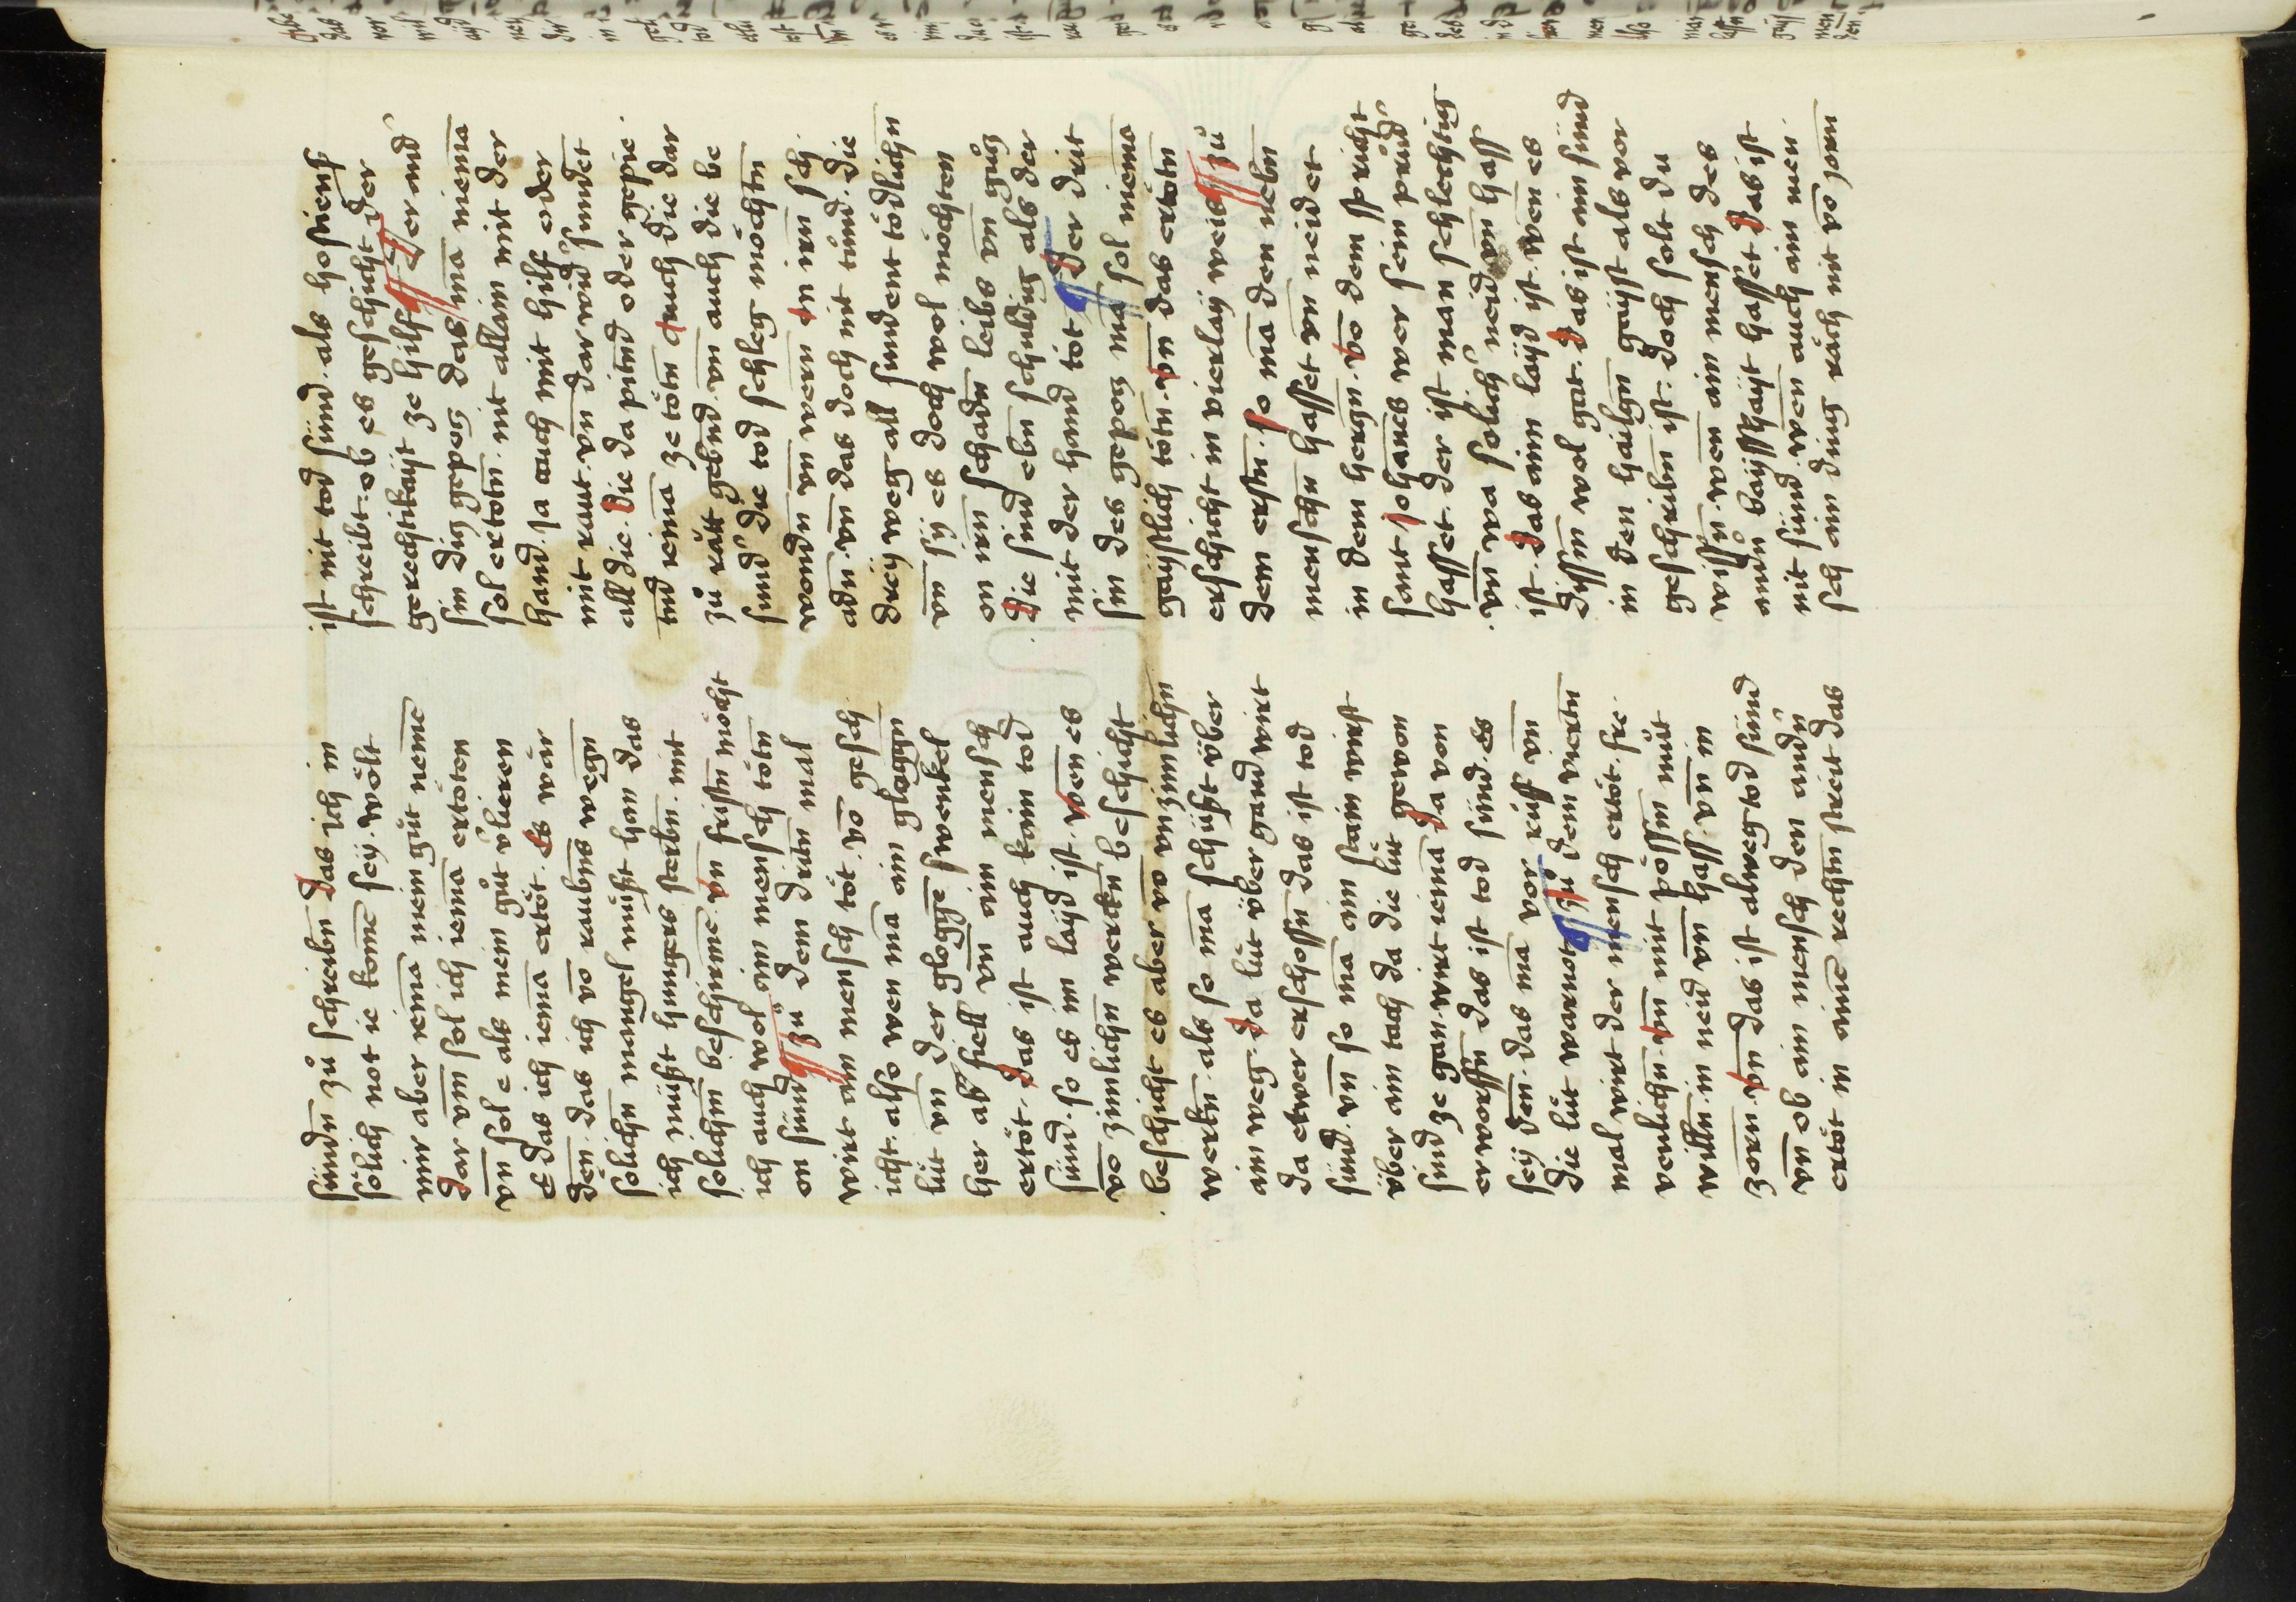 sündn̄ zů schreibn̄ Das ich in
sölich not ie kome͞ seÿ. wölt
mir aber iema͞ mein gůt neme͞
Dar vm͞ sol ich iema͞ ertöten
vn͞ sol e als mein gůt vliexen
E das ich iema͞ ertöt. Es wär
den͞. das ich vo͞ raubns wegn̄
solichn̄ mangel můßt hon das
ich müßt hungers sterbn̄. mit
solichm̄ beschirme͞. vn͞ fristn̄ möcht
ich auch wol ain mensch tötn̄
on sünd ¶ Zů dem dritn̄ mal
wirt ain mensch töt. vo͞ gesch
icht. also wen ma͞ ain gloggn̄
lüt vn͞ der glogge swenkel
her ab fiell vn͞ ain mensch
ertöt. Das ist auch kain tod
sünd. so es im laÿd ist. wen͞ es
vo͞ zimlichn̄ werckn̄ beschicht
. beschicht es aber vo͞ vnzimlichn̄
werkn̄. als so ma͞ schüßt v̈ber
ain weg. Da lüt v̈ber gand wirt
da etwer erschossn̄ das ist tod
sünd. vn͞ so ma͞ ain stain wirft
v̈ber ain tach da die lüt gewon
sind ze gan. wirt iema͞ Da von
erworffn̄ das ist tod sünd. es
seÿ den͞. das ma͞ vor rüff vn͞
die lüt warnot ¶ Zů dem viertn̄
mal wirt der mensch ertöt. fre
venlichn̄. vn͞ mit pössm̄ můt
willn̄. in neid vn͞ hass. vn͞ in
zorn. vn͞ das ist alweg tod sünd
vn͞ ob ain mensch den andn̄
ertöt in aine͞ rechtn̄ streit das
ist nit tod sünd. als hostiensꝭ
schreibt. ob es geschicht der
gerechtikaÿt ze hilf ¶ Der and
sin diz gepoz das ma͞ niema͞
sol ertotn̄. nit allain mit der
hand. ja auch mit hilf oder
mit raut. vn͞ dar wid sundet
all die. Die da pitnd oder gepie.
tnd iema͞ ze tötn̄ Auch die dar
zů rätt gebnd. vn͞ auch die be
sund die tod schleg möchtn̄
wendn̄ vn͞ wern An irn̄ sch
adn̄. vn͞ das doch nit tünd. die
dreÿ weg all sundent tödlichn̄
vn͞ sÿ es doch wol möchten
on irn̄ schadn̄ leibs vn͞ gůtz
. Die sind ebn̄ schuldig als der
mit der hand töt ¶ Der drit
sin des gepoz ma͞ sol niema͞
gaÿstlich tötn̄. vn͞ das ertötn̄
erschicht in vierlaÿ weis ¶ Zů
dem erstn̄. So ma͞ den nebn̄
menschn̄ hasset vn͞ neidet
in dem herzn̄. vo͞ dem spricht
sant Johanes wer sein průd
hasset. der ist man schlechtig
. vn͞ wa solich neid vn͞ hass
ist. Das aim laÿd ist. wen͞ es
dissm̄ wol gat. Das ist ain sünd
in den hailgn̄ gaÿst als vor
geschribn̄ ist. doch solt du
wissn̄. wen͞ ain mensch des
andn̄ baÿsskaÿt hasset Das ist
nit sünd. wen͞ auch ain men.
sch ain ding räch nit vo͞ zorn